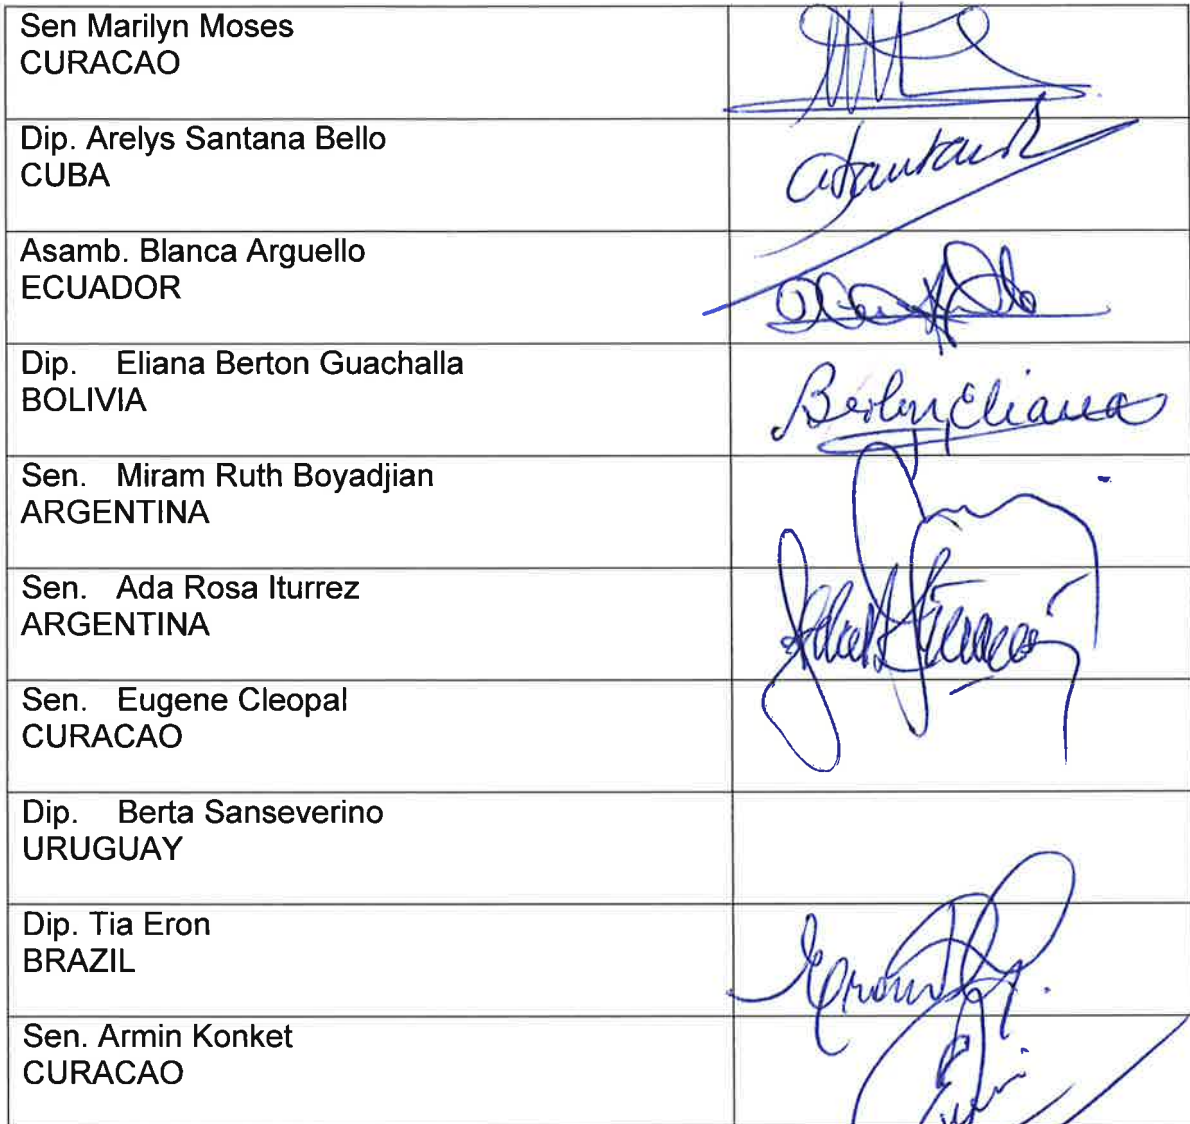 Sen Marilyn Moses
CURACAO
Dip. Arelys Santana Bello
CUBA
Asamb. Blanca Arguello
ECUADOR
Dip. Eliana Berton Guachalla
BOLIVIA
Berton, Eliana
Sen. Miram Ruth Boyadjian
ARGENTINA
Sen. Ada Rosa Iturrez
ARGENTINA
Sen. Eugene Cleopal
CURACAO
Dip. Berta Sanseverino
URUGUAY
Dip. Tia Eron
BRAZIL
Sen. Armin Konket
CURACAO